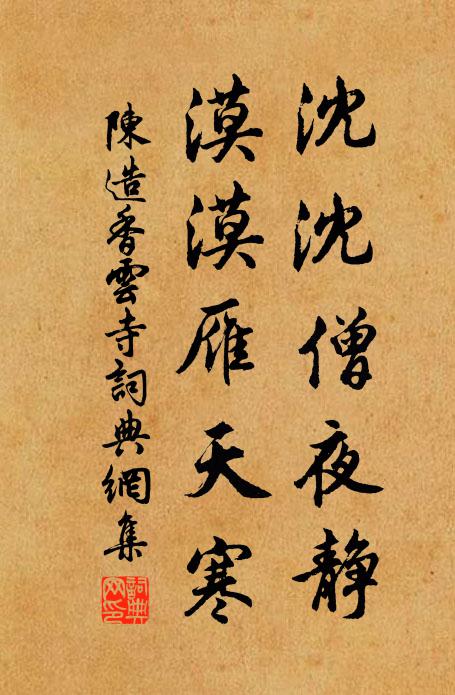 沈沈僧夜静
漠漠雁天寒
陳造香雲寺詞典網集
詞典网印